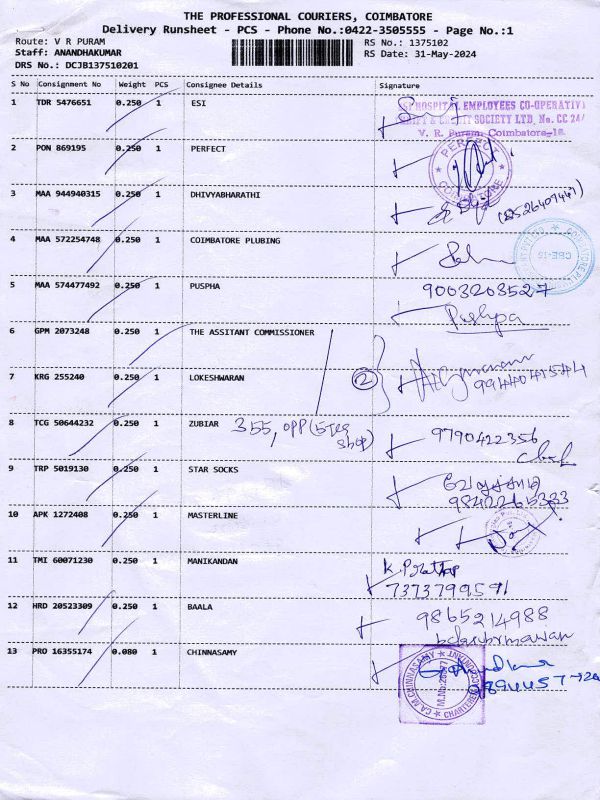 THE PROFESSIONAL COURIERS, COIMBATORE
Delivery Runsheet - PCS - Phone No.:0422-3505555 - Page No.:1
Route: V R PURAM RS No.: 1375102
Staff: ANANDHAKUMAR RS Date: 31-May-2024
DRS No.: DCJB137510201
S No Consignment No Weight PCS Consignee Details Signature
1 TDR 5476651 0.250 1 ESI
HOSPITAL EMPLOYEES CO-OPERATIV
SOCIETY LTD, No. CC 24/
V. R. Puram, Coimbatore-18.
2 PON 869195 0.250 1 PERFECT
PERFECT
3 MAA 944940315 0.250 1 DHIVYABHARATHI
4 MAA 572254748 0.250 1 COIMBATORE PLUBING
CBE-15
5 MAA 574477492 0.250 1 PUSPHA 9003203527
Pushpa
6 GPM 2073248 0.250 1 THE ASSITANT COMMISSIONER
2
7 KRG 255240 0.250 1 LOKESHWARAN
8 TCG 50644232 0.250 1 ZUBIAR 355, opp 9790422356
shop)
9 TRP 5019130 0.250 1 STAR SOCKS
9842265333
10 APK 1272408 0.250 1 MASTERLINE
11 TMI 60071230 0.250 1 MANIKANDAN K. Prathap
7373799591
12 HRD 20523309 0.250 1 BAALA 9865214988
13 PRO 16355174 0.080 1 CHINNASAMY
CA M.CHINNASAMY
CHARTERED ACCOUNTANT